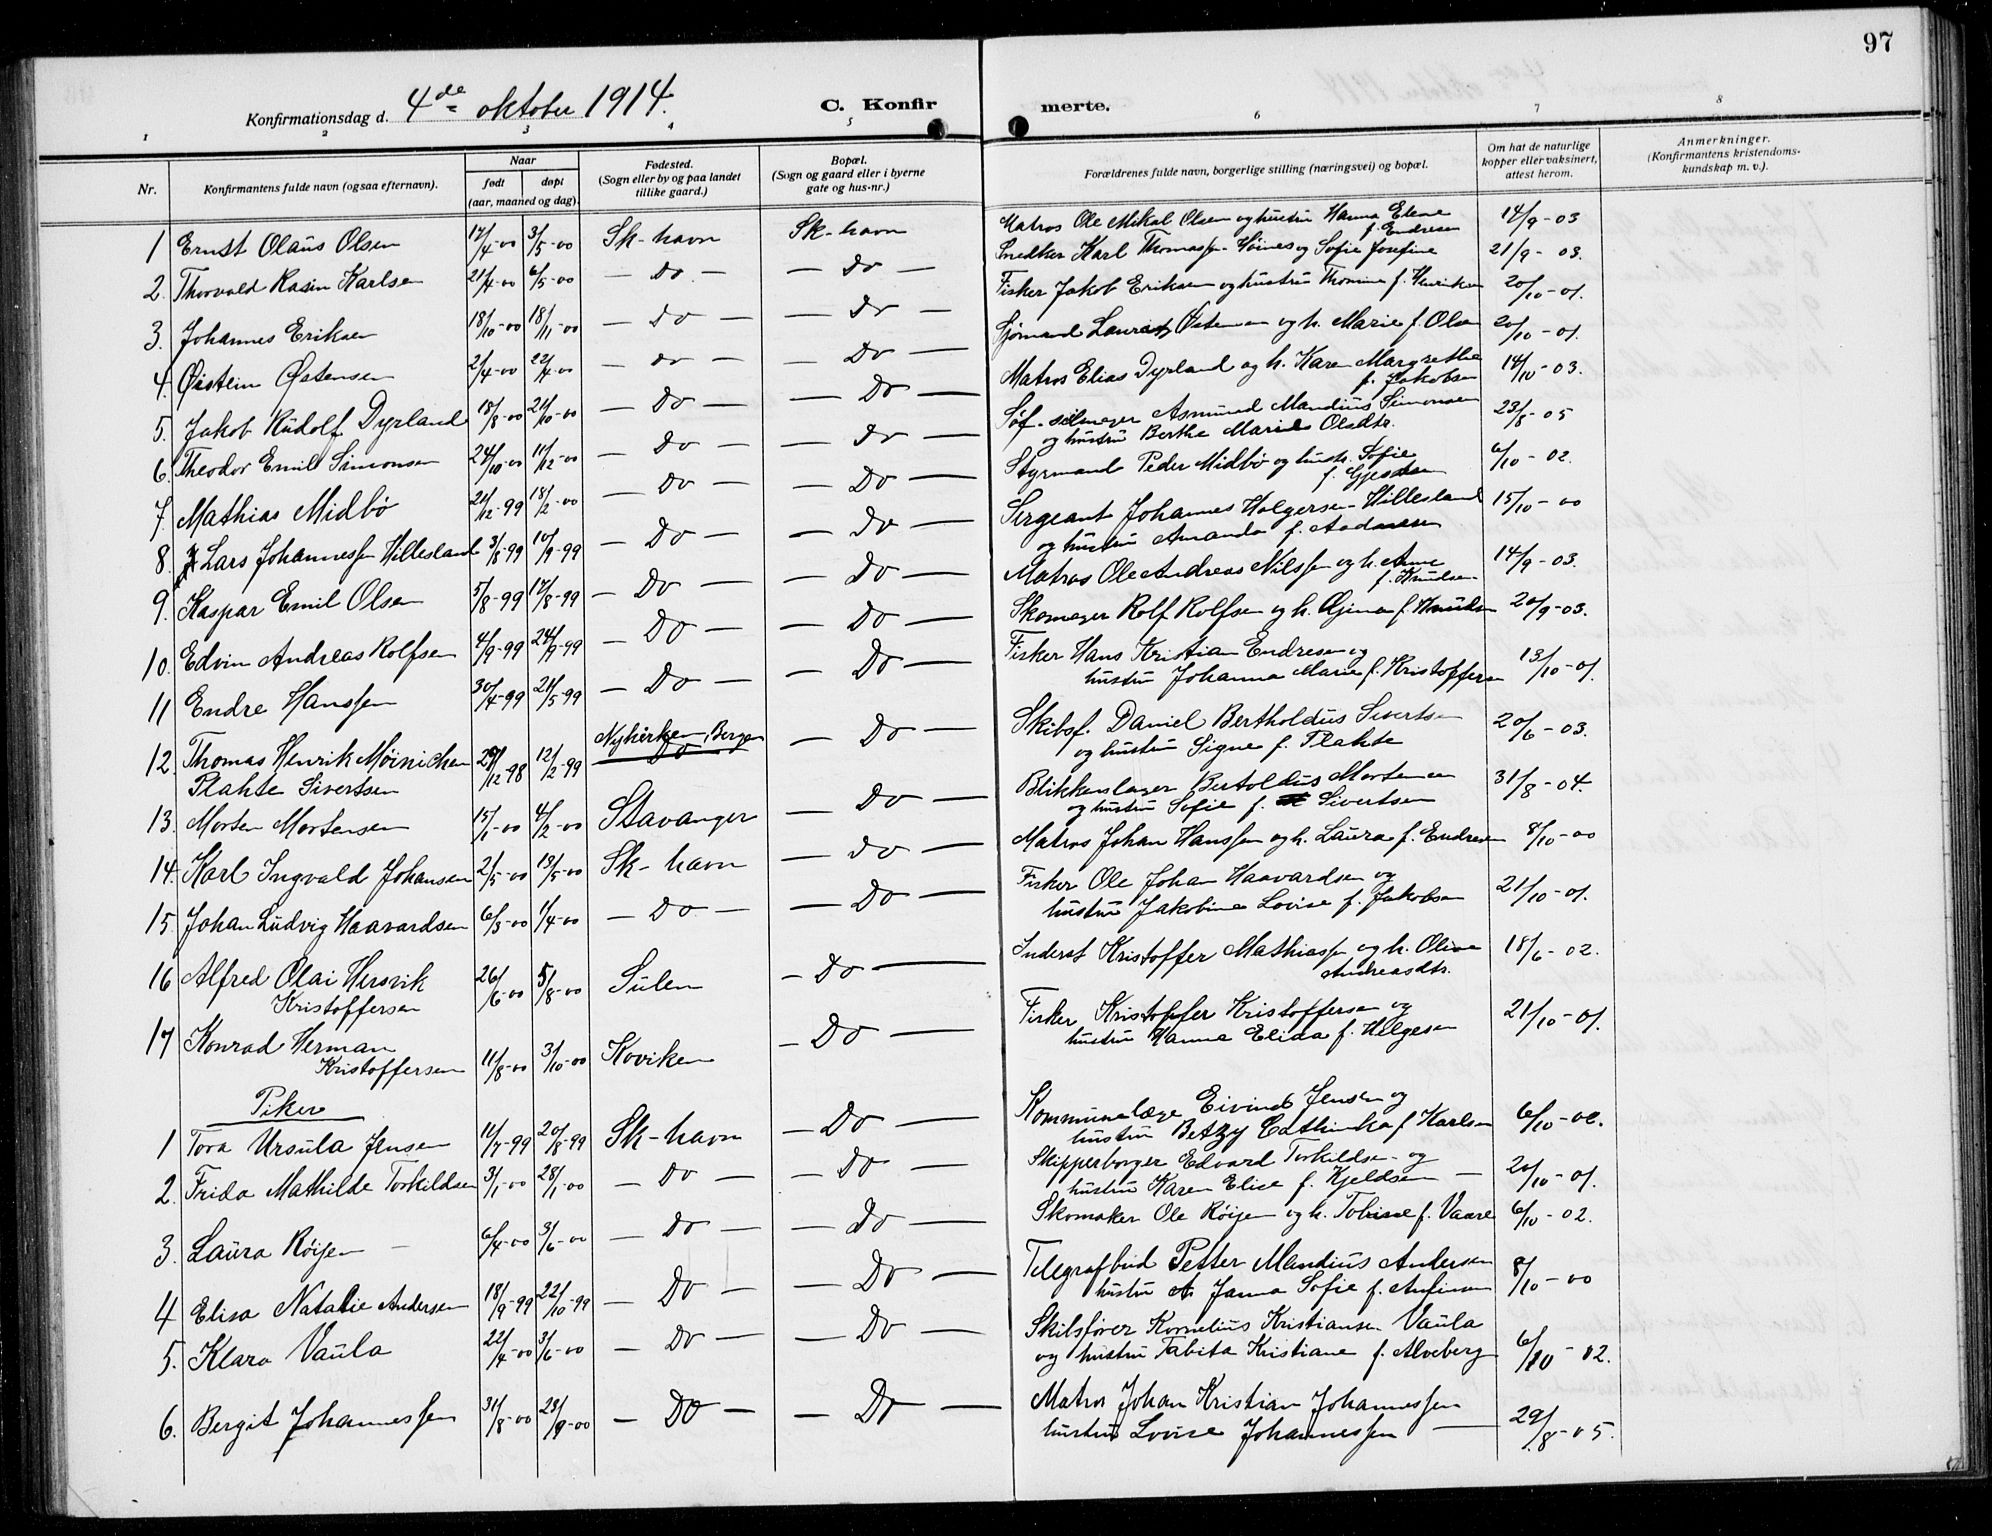 97
Konfirmationsdag d. 4de oktober 1914.
C. Konfirmerte.
1 2 3 4 5 6 7 8
Nr. Konfirmantens fulde navn (ogsaa efternavn). Naar født døpt (aar, maaned og dag). Fødested. (Sogn eller by og paa landet tillike gaard.) Bopæl. (Sogn og gaard eller i byerne gate og hus-nr.) Forældrenes fulde navn, borgerlige stilling (næringsvei) og bopæl. Om hat de naturlige kopper eller vaksinert, attest herom. Anmerkninger. (Konfirmantens kristendomskundskap m. v.).
1 Ernst Olaus Olsen 17/4-00 3/5-00 Sk-havn Sk-havn Matros Ole Mikal Olsen og hustru Hanna Elene f. Endresen 14/9-03
2. Thorvald Rasin Karlsen 21/4-00 6/5-00 — Do — — Do — Snedker Karl Thomassen Høines og Sofie Josefine 21/9-03.
3. Johannes Eriksen 18/10-00 18/11-00 — Do — — Do — Fisker Jakob Eriksen og hustru Thomine f. Henriksen 20/10-01.
4. Øistein Østensen 2/4-00 22/4-00 — Do — — Do — Sjømand Lauritz Østensen og h. Marie f. Olsen 20/10-01.
5. Jakob Rudolf Dyrland 18/8-00 21/10-00 — Do — — Do — Matros Elias Dyrland og h. Karen Margrethe f. Jakobsen 14/10-03.
6. Theodor Emil Simonsen 24/10-00 11/12-00 — Do — — Do — Asmund Mandius Simonsen og hustru Berthe Marie Olsdtr. 23/8-05
7. Mathias Midbø 21/12-99 18/2-00 — Do — — Do — Styrmand Peder Midbø og hustr. Sofie f. Gjesdsen 6/10-02.
8. Lars Johannessen Hillesland 3/8-99 10/9-99 — Do — — Do — Sergeant Johannes Holgersen Hillesland og hustru Amanda f. Aadnesen 15/10-00
9. Kaspar Emil Olsen 5/8-99 17/8-99 — Do — — Do — Matros Ole Andreas Nilssen og h. Anne f. Knudsen 14/9-03.
10. Edvin Andreas Rolfsen 4/9-99 24/9-99 — Do — — Do — Skomager Rolf Rolfsen og h. Gjina f. Knudsen 20/9-03.
11 Endre Hanssen 30/4-99 21/5-99 — Do — — Do — Fisker Hans Kristian Endresen og hustru Johanna Marie f. Kristoffersen 13/10-01.
12. Thomas Henrik Møinichen Plahte Sivertsen 29/12-98 12/2-99 Nykirken, Bergen Do — Do — Skibsf. Daniel Bertholdus Sivertsen og hustru Signe f. Plahte 20/6-03.
13. Morten Mortensen 15/1-00 4/2-00 Stavanger — Do — Blikkenslager Bertoldus Mortensen og hustru Sofie f. Sivertsen 31/8-04.
14. Karl Ingvald Johansen 2/5-00 13/5-00 Sk-havn — Do — Matros Johan Hanssen og h. Laura f. Endresen 8/10-00
15. Johan Ludvig Haavardsen 6/3-00 1/4-00 — Do — — Do — Fisker Ole Johan Haavardsen og hustru Jakobine Lovise f. Jakobsen 21/10-01.
16 Alfred Olai Hersvik Kristoffersen 26/6-00 5/8-00 Sulen — Do — Inderst Kristoffer Mathiassen og h. Oline Andreasdtr. 18/6-02.
17 Konrad Herman Kristoffersen 11/8-00 3/10-00 Koviken — Do — Fisker Kristoffer Kristoffersen og hustru Hanna Elida f. Helgesen 21/10-01.
Piker
1 Tora Ursula Jensen 11/7-99 20/8-99 Sk-havn — Do — Kommunelæge Eivind Jensen og hustru Betzy Cathinka f. Karlsen 6/10-02.
2. Frida Mathilde Torkildsen 3/1-00 28/1-00 — Do — — Do — Skipperborger Edvard Torkildsen og hustru Karen Elise f. Kjeldsen — 20/10-01.
3. Laura Röisen — 6/4-00 3/6-00 — Do — — Do — Skomaker Ole Röisen og h. Tobine f. Vaare 6/10-02.
4 Elisa Natalie Andersen 18/9-99 22/10-99 — Do — — Do — Telegrafbud Petter Mandius Andersen hustru Janna Sofie f. Anfinsen 8/10-00
5. Klara Vaula 22/4-00 3/6-00 — Do — — Do — Skibsfører Kornelius Kristiansen Vaula og hustru Tabita Kristiane f. Alveberg 6/10-02.
6. Bergit Johannessen 31/8-00 23/9-00 — Do — — Do — Matros Johan Kristian Johannessen hustru Lovise Johannessen — 29/8-05.